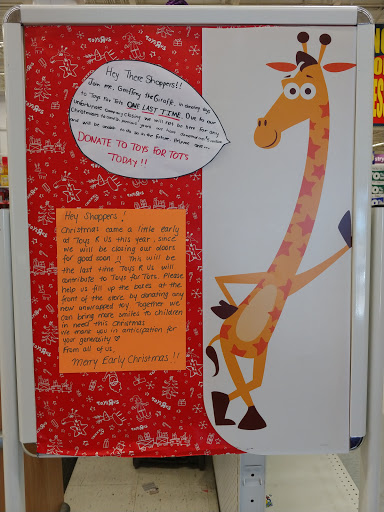 Hey There Shoppers!!
Join me, Geoffrey the Giraffe, in donating toys
to Toys For Tots ONE LAST TIME. Due to our
unfortunate company closing we will not be here for any
Christmases to
and will be unable to do so in the future. Please
DONATE TO TOYS FOR TOTS
TODAY!!
Hey Shoppers!
Christmas came a little early
at Toys R Us this year, since
we will be closing our doors
for good soon!! This will be
the last time Toys R Us will
contribute to Toys for Tots. Please
help us fill up the boxes at the
front of the store by donating any
new unwrapped toy. Together we
can bring more smiles to children
in need this Christmas
We thank you in anticipation for
your generosity
From all of us,
Merry Early Christmas!!